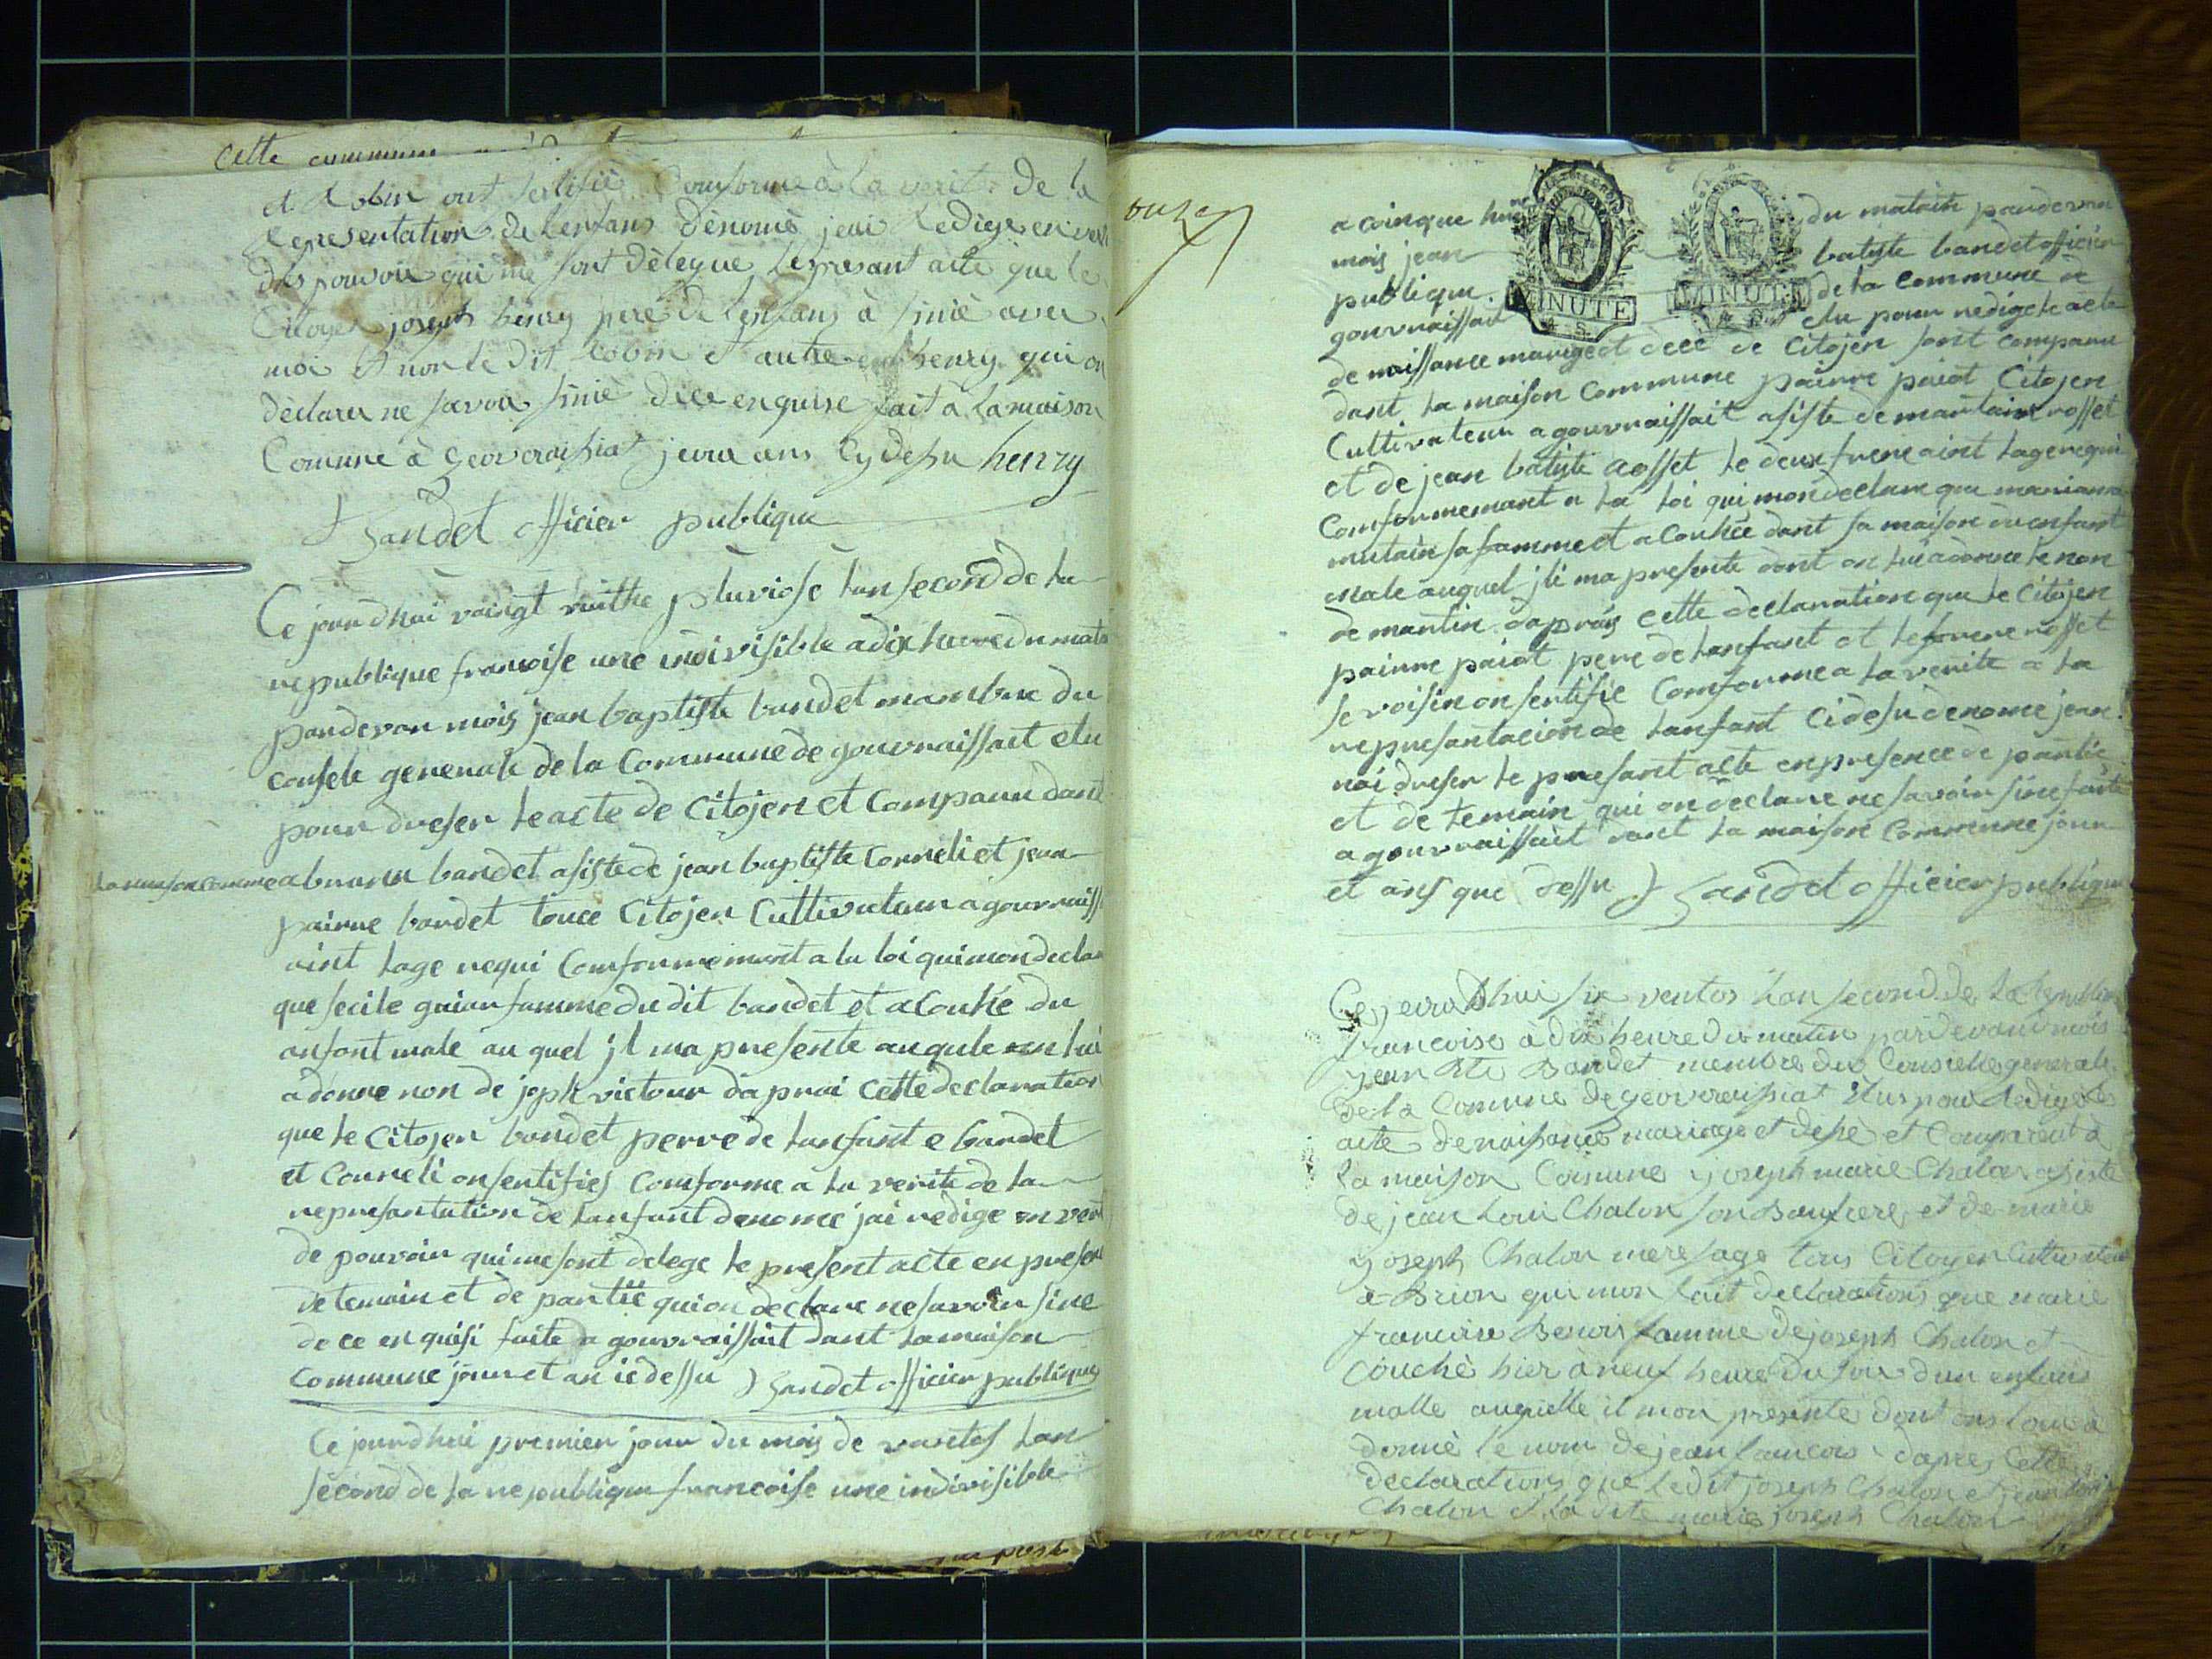 cette commune
et Robin ont sertifiè Conforme à la verite De la
Representation de lenfans dènomè jeai Redige en vertu
des pouvoir qui me sont dèlegue le presant acte que le
Citoyen joseph henry pere de lenfans à siniè avec
moi et non le dit Robin et autre henry qui on
dèclarer ne savoir siniè dece enquise fait à la maison
Comune à Geovraissiat jeour ans Cy desu henry
Bandet officier publique
Ce jourdhui vaingt vuithe pluviose lan second de la
republique francoise une indivisible a dix heure du mata
pardevan mois jean baptiste bandet mambre du
consele generale de la Commune de gouvraissait elu
pour dreser le acte de Citojen et Comparu dant
la maison comune a bandet asiste de jean baptiste Correli et jean
pairre bandet touce Citojen Cultivateur a gouvraiss
aint lage requi Comformemant a la loi qui mon declar
que secile guian famme du dit bandet et a Couhé du
anfant male au quel jl ma presente auqule on lui
a donne non de joph victour daprai cette declaration
que le Citojen bandet perre de lanfant e bandet
et Correli on sertifies Comforme a la verite de la
represantation de lanfant denomee jai redige en vert
de pouvoir qui me sont delege le present acte en presen
de temain et de partiè qui on declare ne savoir sine
de ce en quisi faite a gouvraissait dant la maison
Commune jour et an ie dessu Bandet officier publique
Ce jourdhui premier jour du mois de vantos lan
second de la republique francoise une indivisible
onze
a coinque heure du matain pardevan
mois jean batiste bandet officier
publique de la commune de
gouvraissait elu pour redige le acte
MINUTE
MINUTE
de naissance marige et dece de Citojen sont comparu
dant la maison Commune pairre paiot Citojen
Cultivateur a gouvraissait asiste de martain rosset
et de jean batiste Rosset le deux frere aint lage requi
Comformemant a la loi qui mon declare que mariana
mutain sa famme et a Couhee dant sa maison un enfant
male auquel jli ma presente dont on lui a donne le non
de martin daprais cette declaration que le Citojen
pairre paiot pere de lanfant et le frere rosset
se voisin on sertifie Comforme a la verite a la
represantacion de lanfant Ci desu denome jean
nai dreser le presant acte en presence de partie
et de temain qui on declare ne savoir sine faite
a gouvraissait dant la maison Commune jour
et ans que dessu Bandet officier publique
Ce jeourdhui six ventos lan second de la Republique
francoise à dix heure du matin pardevant mois
jean Bte Bandet membre du Conseille generale
de la Comune de geovraissiat Elus pour Rediger les
acte de naisance mariage et desè et Comparent à
la maison Comune joseph marie Chalon asiste
de jean Loui Chalon son Baufrere et de marie
joseph Chalon mere sage tous Citoyen Cultivateur
a Brion qui mon fait declarations que marie
francoise Benois famme de joseph Chalon et
couchè hier à neuf heure du soir dun enfans
malle auquelle il mon presentè dont ons loui à
donnè le nom de jean francois daprès cette
declarations que ledit joseph Chalon et jean Louis
Chalon et la dite marie joseph Chalon